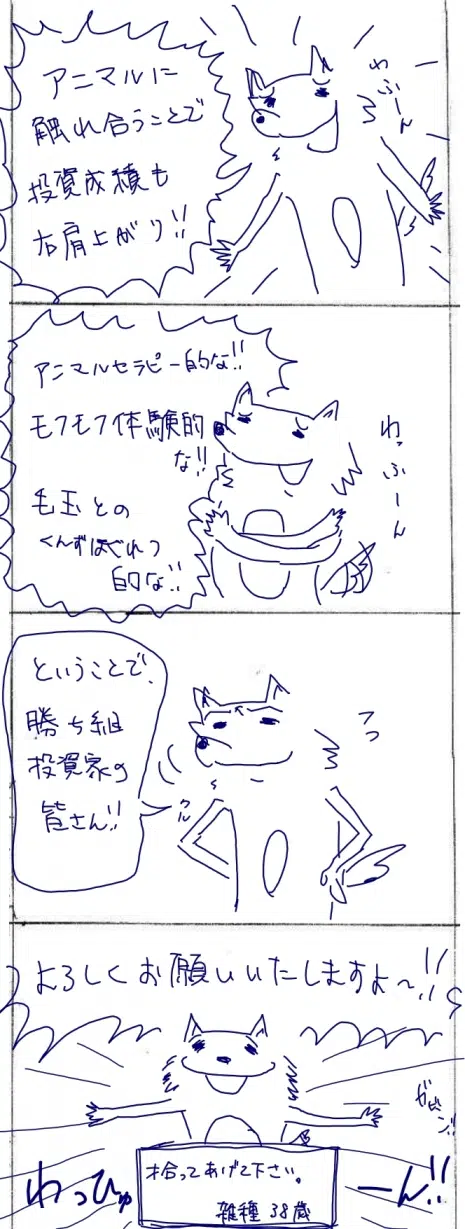 アニマルに
触れ合うことで
投資成績も
右肩上がり!!
わふーん
アニマルセラピー的な!!
モフモフ体験的
な!!
毛玉との
くんずほぐれつ
的な!!
わっふーん
ということで、
勝ち組
投資家の
皆さん!!
フッ
クル
よろしくお願いいたしますよ〜!!
ガビーン!!
わっひゅーん!!
拾ってあげて下さい。
雑種 38歳